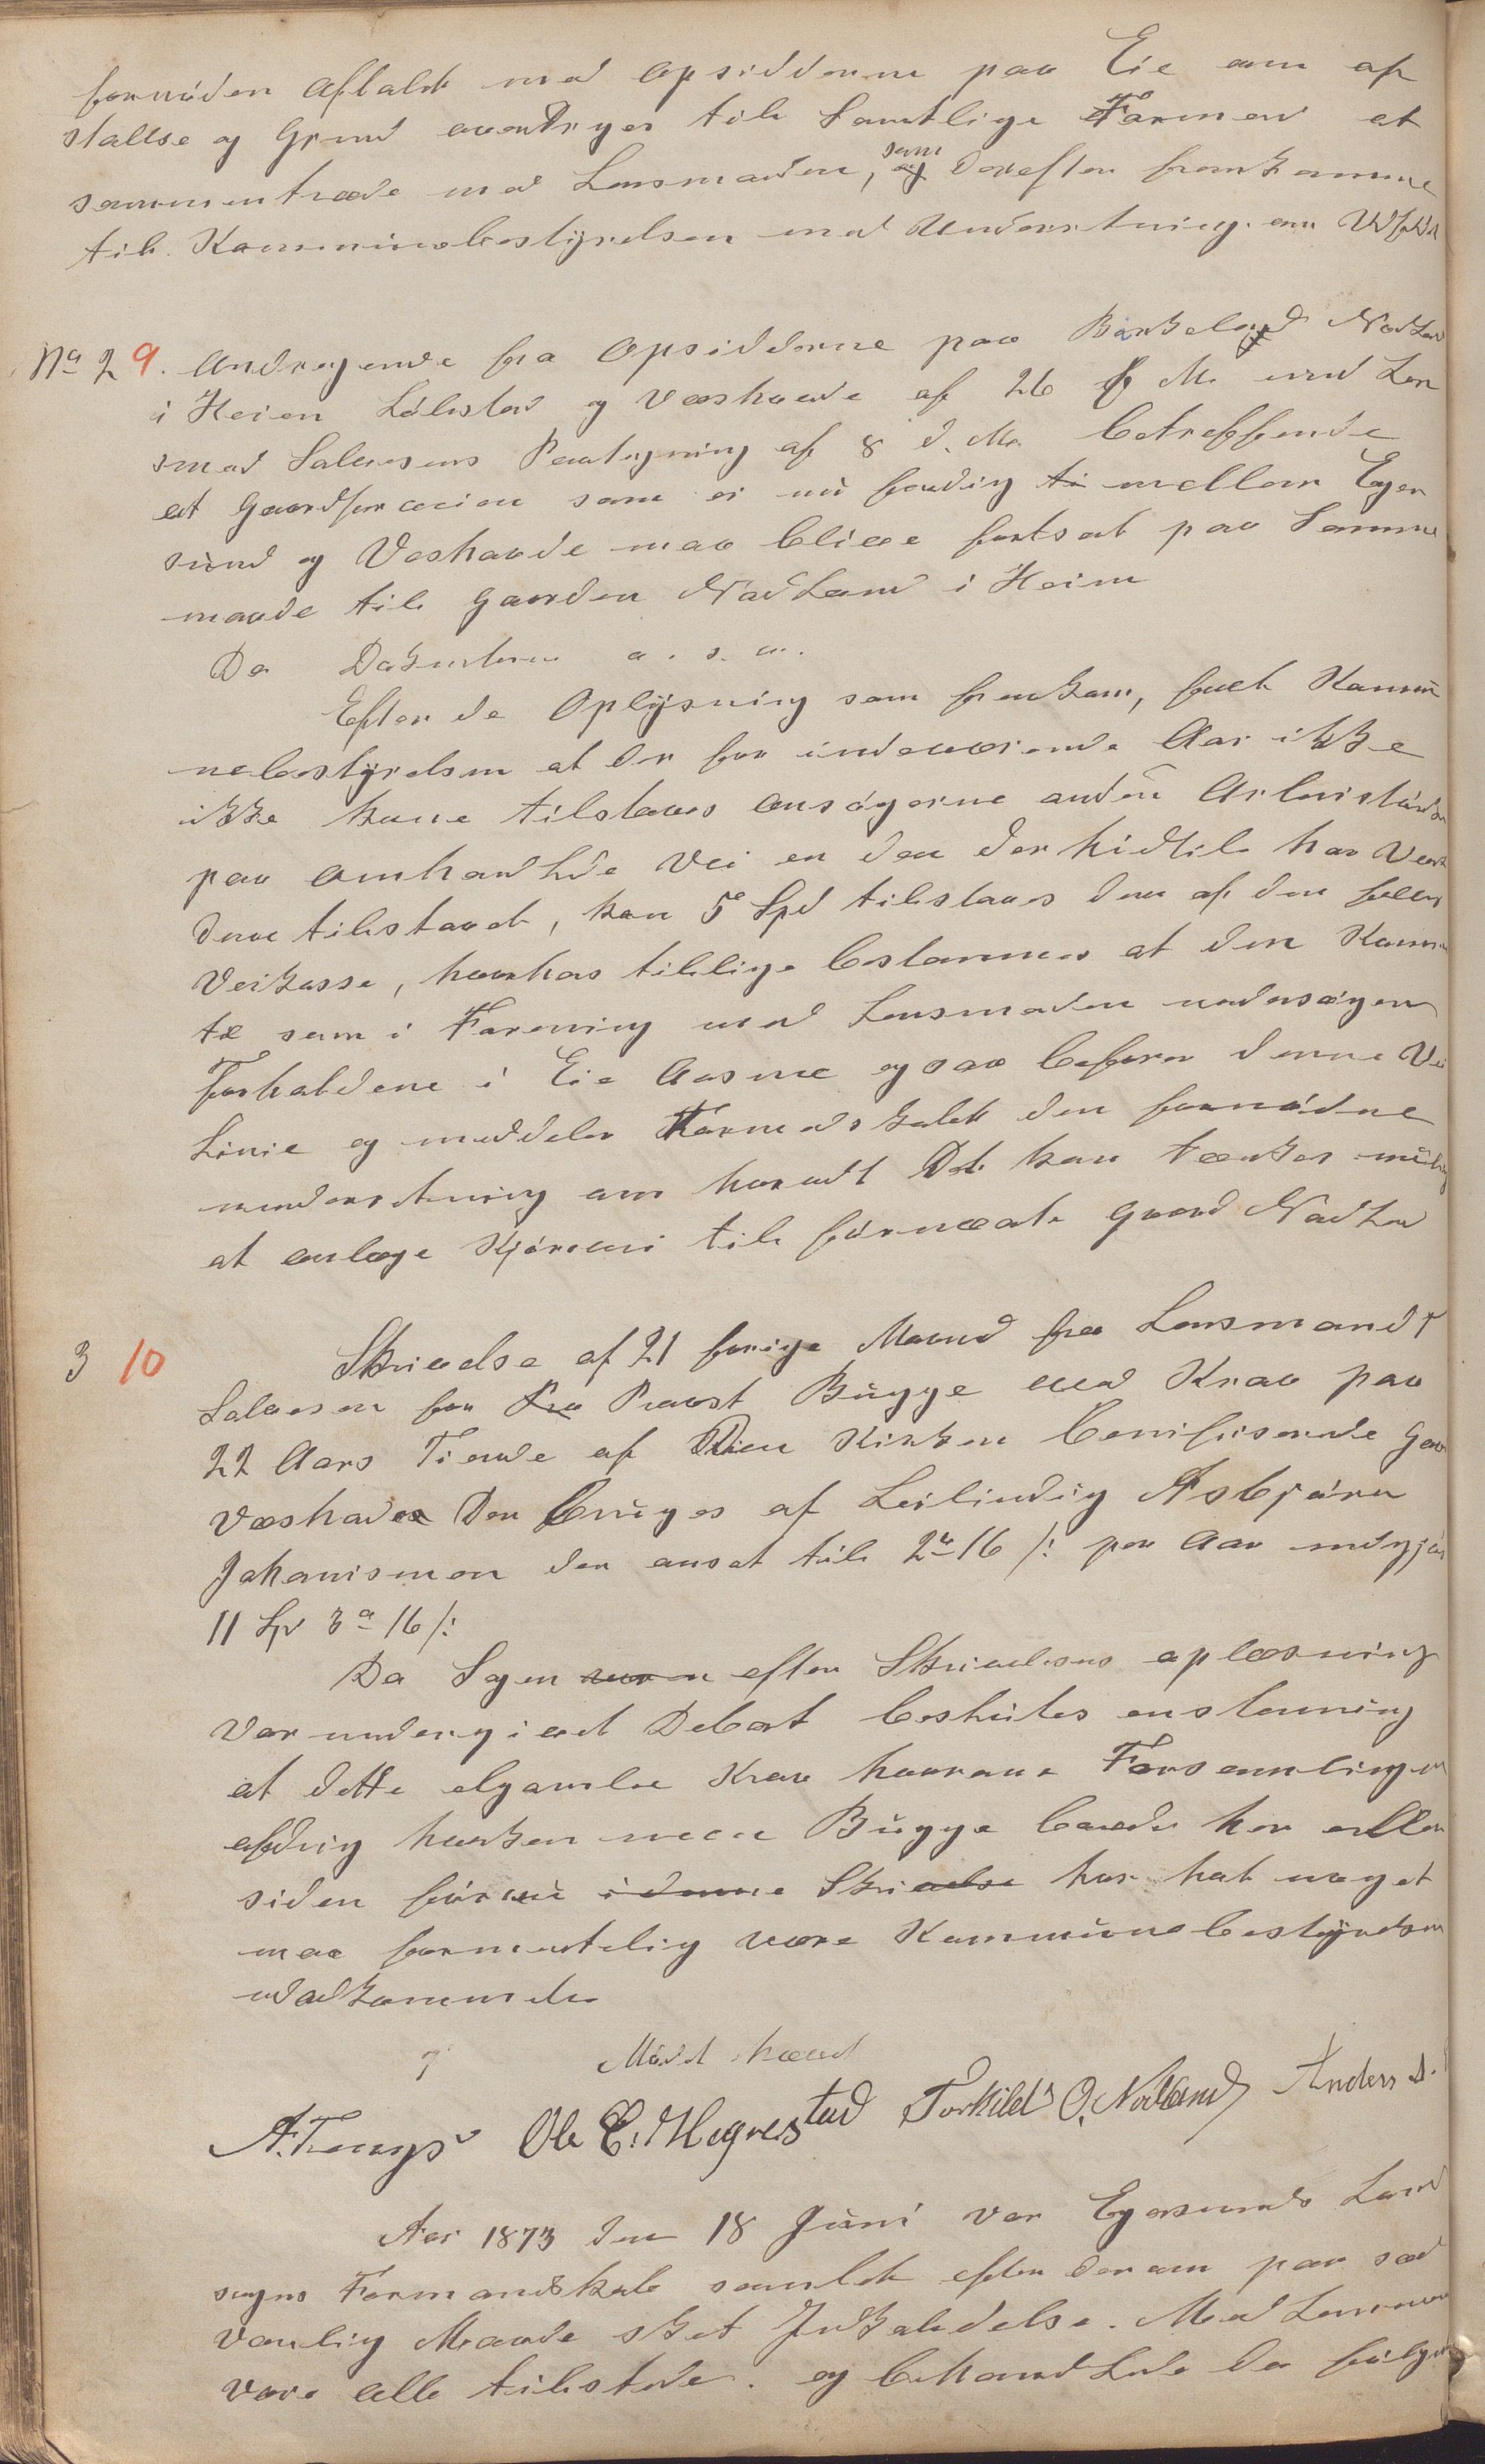 fornöden aftalt med Opsidderne paa Eie om af
stallse og Grund overdrges til Samtlige Formend at
sammentræde med Lensmaden, som derefter fremkomme
til Kommunebestyrelsen med Underetning om Udfald
No 2 9. Andragende fra Opsidderne paa Birkeland Nodland
i Heien Lölestad og Veshovde af 26 f M. med Len
smad Salvesens Paategning af 8 d. M. betreffende
at Gaardsveien som er nu ferdig ti mellem Eger
sund og Veshovde maa blive fortsat paa Samme
maade til Gaarden Nodland i Heien
Da Dokumterne o. s. v.
Efter de Oplysning som fremkom, fandt Kommu
nebestyrelsen at der for indeværende Aar ikke
ikke kune tilstaaes Ansögerne anden Arbeidstid
paa omhandlede Vei en den der hidtil har været
dem tilstaaet, kun 5 Spd tilstaaes dem af den felles
Veikasse, hvorhos tillige bestemmes at den Komm
te som i Forening med Lensmaden undersöger
Forholdene i Eie Aasene ogsaa befarer denne Vei
Linie og meddeler Formandskabet den fornödne
underetning om hvorvidt Det kan tænkes mulig
at anlæge Kjörevei til förnevnte Gaard Nodland
3 10 Skrivelse af 21 forige Maaned fra Lensmand
Salvesen for Pro Provst Bugge med Krav paa
22 Aars Tiende af den Kirken benifiserende Gaar
Veshovde Der bruges af Leilindig Asbjörn
Johanismen der ansat til 2 # 16 /: per Aar udgjör
11 Sp 3 # 16 /:
Da Sagen efter Skrivelsens oplæsning
var undergivet Debat besluttes enstemig
at dette elgamle Krav hvorom Forsamlingen
aldrig hverken med Bugge baade her eller
siden för nu i denne Skrivelse har hat noget
maa formentelig være Kommunebestyrelsen
uvedkommende
Mödet hævet
A. Tengs Ole E. Hegrestad Torkild O. Nodland Anders A.
Aar 1873 den 18 Juni var Egersunds Land
sogns Formandskab samlet efter derom paa sed
vanlig Maade sket Indkaldelse. Medlemmer
vare alle tilstede. og behandlede da fölgen